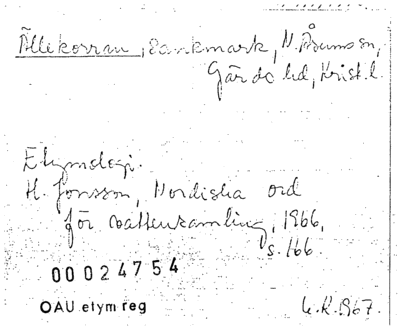 Ällekorran, sankmark, N. Åsumssn,
Gärds hd, Krist. l.
Etymologi.
H. Jonsson, Nordiska ord
för vattensamling, 1966,
s. 166.
00024754
OAU etym reg
1967.